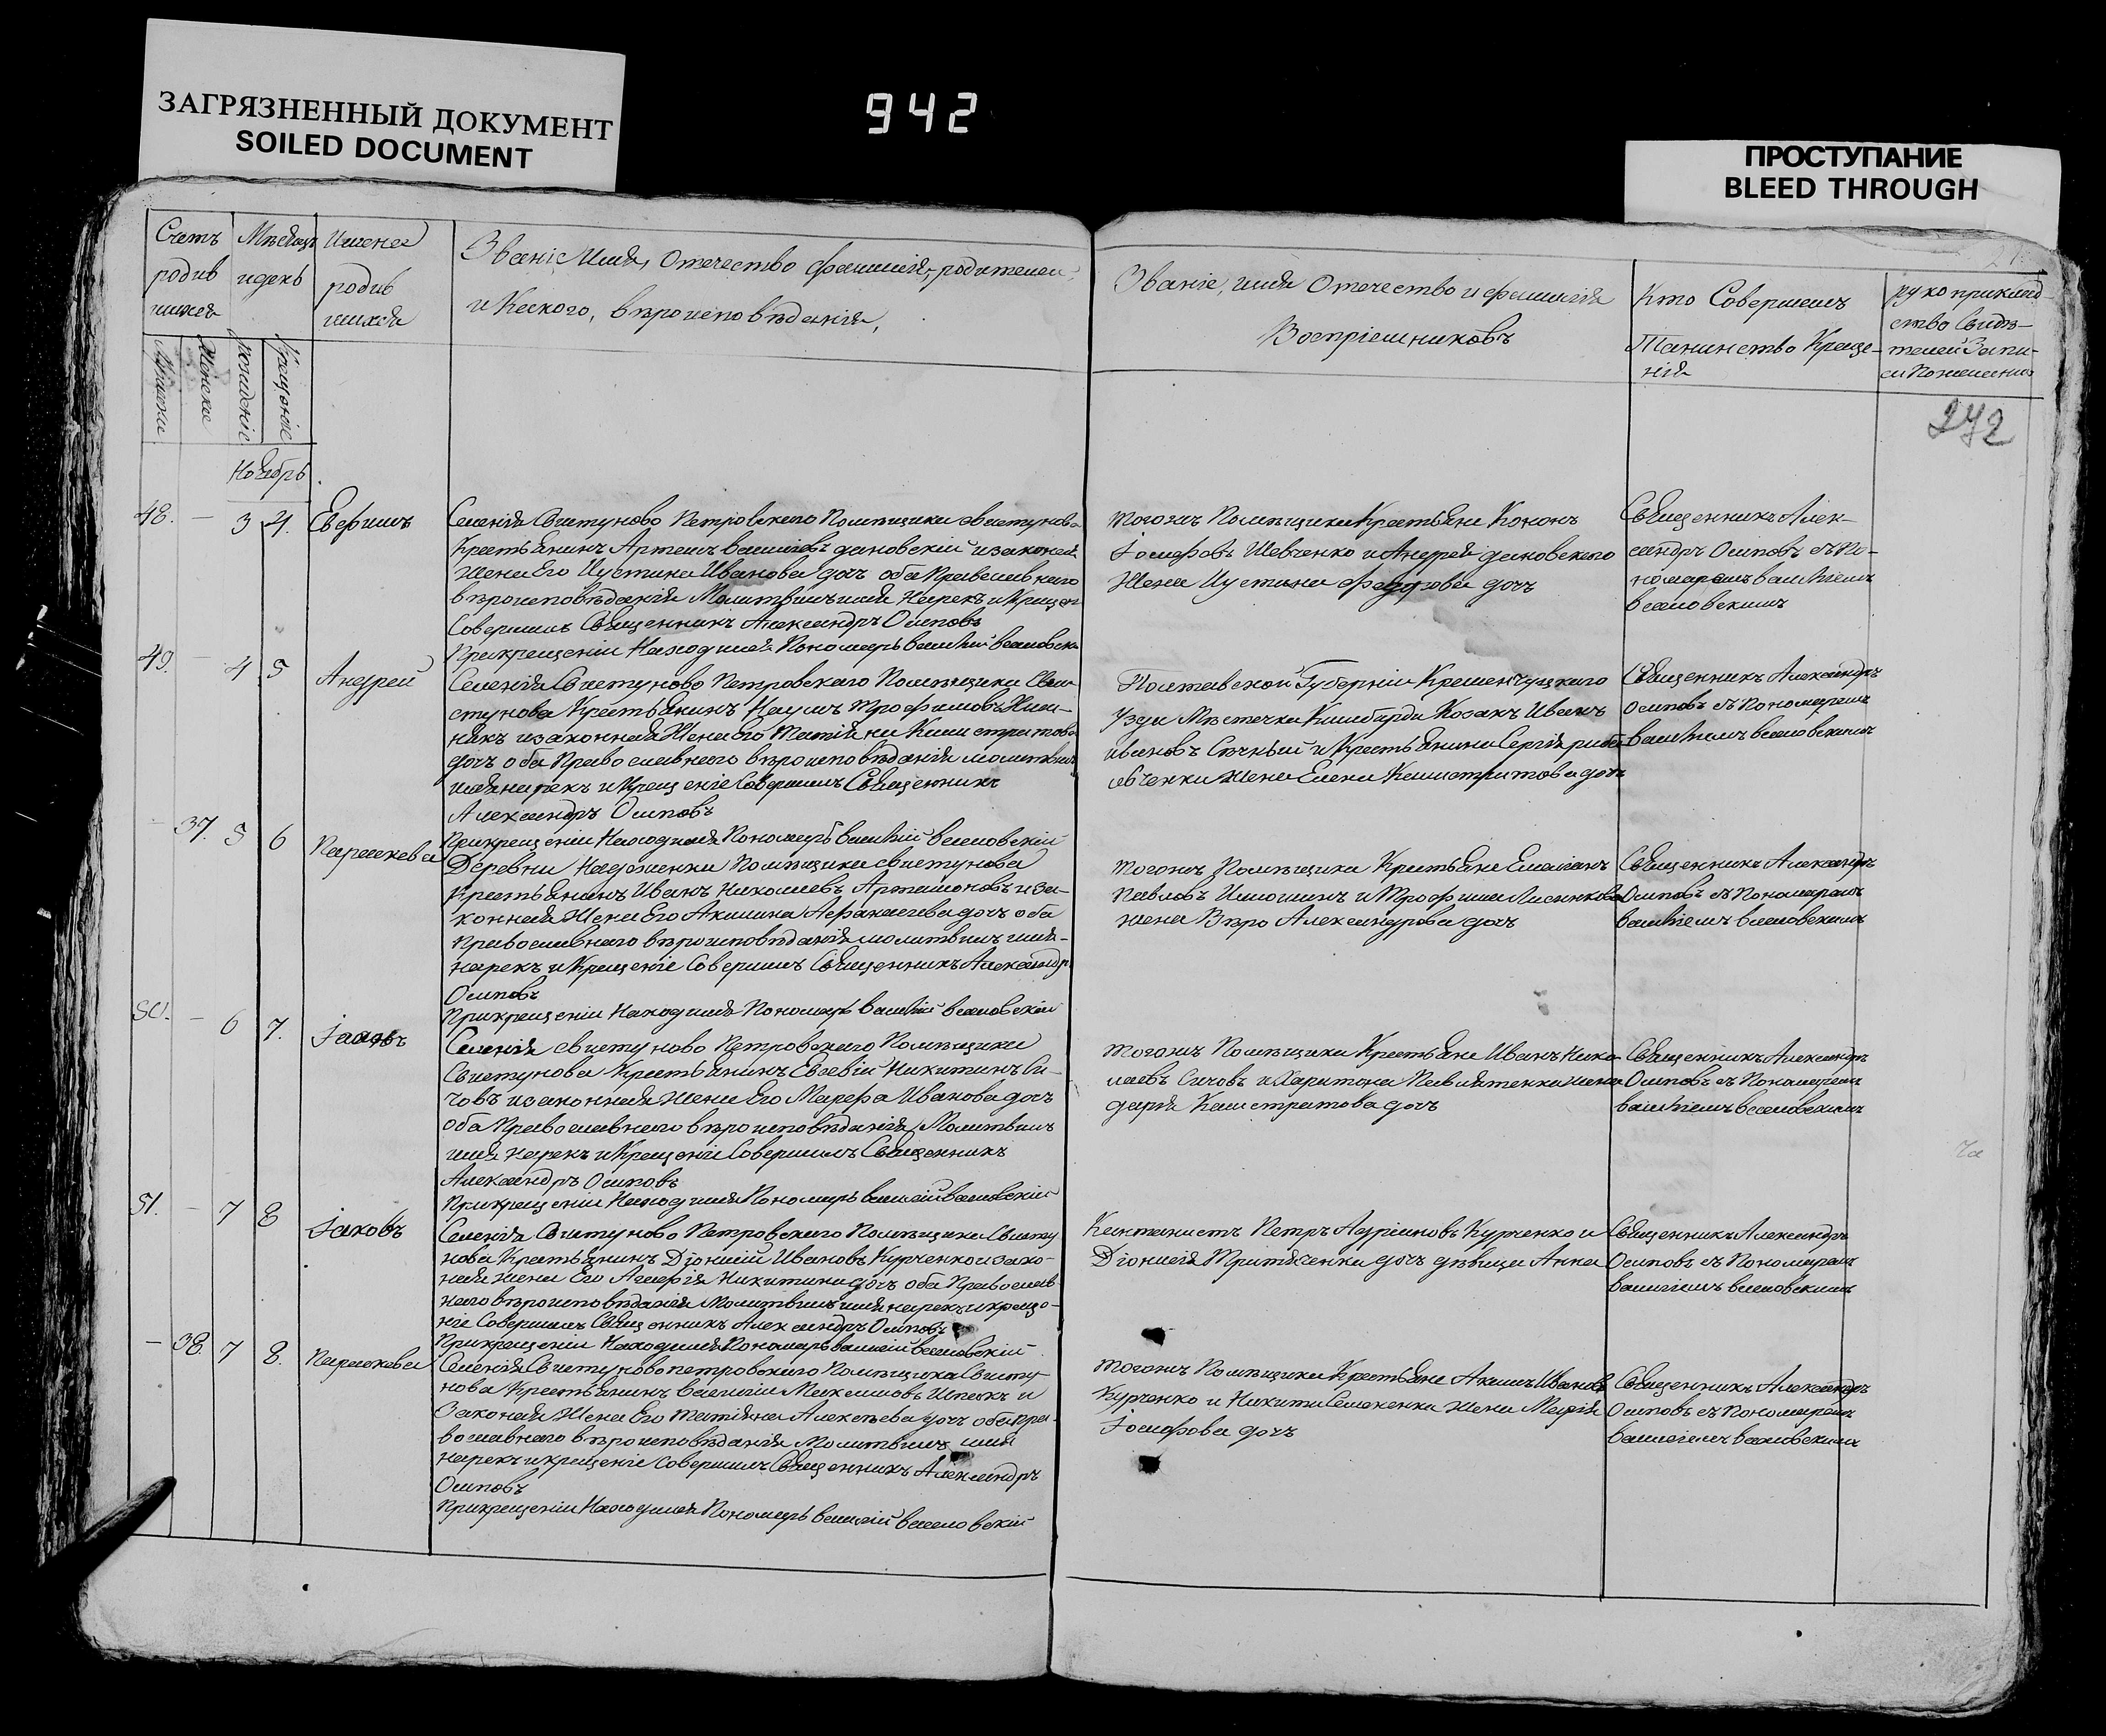 ЗАГРЯЗНЕННЫЙ ДОКУМЕНТ
SOILED DOCUMENT
942
ПРОСТУПАНИЕ
BLEED THROUGH
Счетъ родив шихся
Мѣсяцъ и день
Имена родив шихся
Званіе Имя, Отечество фамилія, родителей,
и Какого, вѣроисповѣданія,
Званіе, имя Отечество и фамилія
Воспріемниковъ
Кто Совершилъ
Таинство Креще-
нія
рукоприклад-
ство Свидѣ-
телей Запи-
си
Женска
рожденіе
Крещеніе
272
Ноябрь
48. — 3 4. Евфимъ
Селенія Свистуново Петровскаго Помѣщика Свистунова
Крестьянинъ Артемъ Василіевъ диковскій изаконая
Жена Его Иустина Иванова дочъ оба Православнаго
вѣроисповѣданія Молитвилъ имя Нарекъ и Крещен
Совершилъ Священникъ Александръ Осиповъ
Прикрещеніи Находился Пономарь Василій
тогожъ Помѣщика Крестьяне Кононъ
Іосифовъ Шевченко и Андрея диковского
Жена Иустина Федорова дочъ
Священникъ Алек-
сандръ Осиповъ съ По-
номаремъ Василіемъ
49. — 4 5 Андрей
Селенія Свистуново Петровскаго Помѣщика Сви-
стунова Крестьянинъ Наумъ Трофимовъ
изаконная Жена Его Татіяна Калистратова
дочъ оба Православнаго вѣроисповѣданія молитвилъ
имя нарекъ и Крещеніе Совершилъ Священникъ
Александръ Осиповъ
Прикрещеніи Находился Пономарь Василій
Полтавской Губерніи Кременчуцкаго
Уѣзда Мѣстечка Козакъ Иванъ
Ивановъ и Крестьянина Сергія
жена Елена Калистратова дочъ
Священникъ Александръ
Осиповъ съ Пономаремъ
Василіемъ
— 37. 5 6 Параскева
Деревни Надеженки Помѣщика Свистунова
Крестьянинъ Иванъ Николаевъ Артамоновъ иза-
конная Жена Его Акилина Афанасіева дочъ оба
Православнаго вѣроисповѣданія молитвилъ имя-
нарекъ и Крещеніе Совершилъ Священникъ Александръ
Осиповъ
Прикрещеніи Находился Пономарь Василій
тогожъ Помѣщика Крестьяне Емеліанъ
Павловъ и Трофима
жена Вѣра Александрова дочъ
Священникъ Александръ
Осиповъ съ Пономаремъ
Василіемъ
50. — 6 7. Іаковъ
Селенія Свистуново Петровскаго Помѣщика
Свистунова Крестьянинъ Евсевій Никитинъ Си-
човъ изаконная Жена Его Марфа Иванова дочъ
оба Православнаго вѣроисповѣданія Молитвилъ
имя нарекъ и Крещеніе Совершилъ Священникъ
Александръ Осиповъ
Прикрещеніи Находился Пономарь Василій
тогожъ Помѣщика Крестьяне Иванъ Нико-
лаевъ Сичовъ и Харитона жена
дарія Калистратова дочъ
Священникъ Александръ
Осиповъ съ Пономаремъ
Василіемъ
51. — 7 8 Іаковъ
Селенія Свистуново Петровскаго Помѣщика Свисту
нова Крестьянинъ Діонисій Ивановъ Курченко изако-
ная жена Его Агафія Никитина дочъ оба Православ-
наго вѣроисповѣданія Молитвилъ имя нарекъ и креще-
ніе Совершилъ Священникъ Александръ Осиповъ
Прикрещеніи Находился Пономарь Василій
Кантонистъ Петръ Адріановъ Курченко и
Діонисія дочъ дѣвица Анна
Священникъ Александръ
Осиповъ съ Пономаремъ
Василіемъ
— 38. 7 8. Параскева
Селенія Свистуново петровскаго Помѣщика Свисту
нова Крестьянинъ Василій Максимовъ и
Законая Жена Его татіяна Алексѣева дочъ оба пра-
вославнаго вѣроисповѣданія Молитвилъ имя
нарекъ и крещеніе совершилъ Священникъ Александръ
Осиповъ
Прикрещеніи Находился Пономарь Василій
тогожъ Помѣщика Крестьяне Акимъ Ивановъ
Курченко и Никиты Семененка Жена Марія
Іосифова дочъ
Священникъ Александръ
Осиповъ съ Пономаремъ
Василіемъ